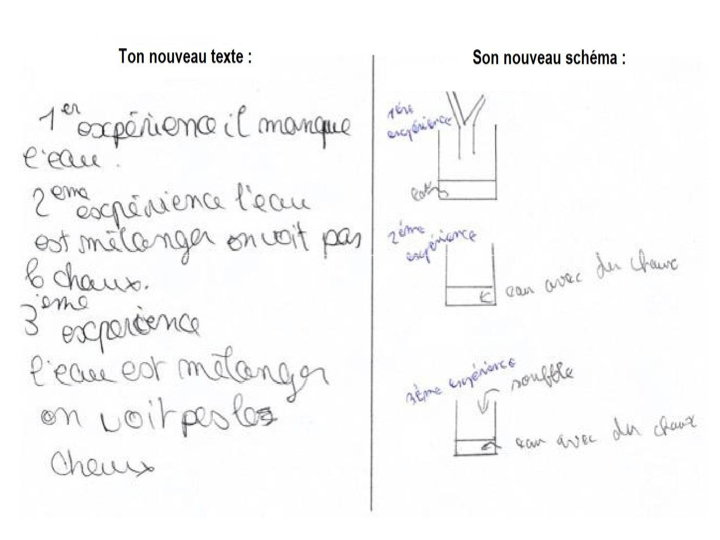 Ton nouveau texte :
1er expérience il manque
l'eau.
2eme expérience l'eau
est mélanger on voit pas
chaux.
3ieme experience
l'eau est mélanger
on voit pas les
chaux
Son nouveau schéma :
1ère
expérience
eau
2ème
expérience
eau avec du chaux
3ème expérience
souffle
eau avec du chaux